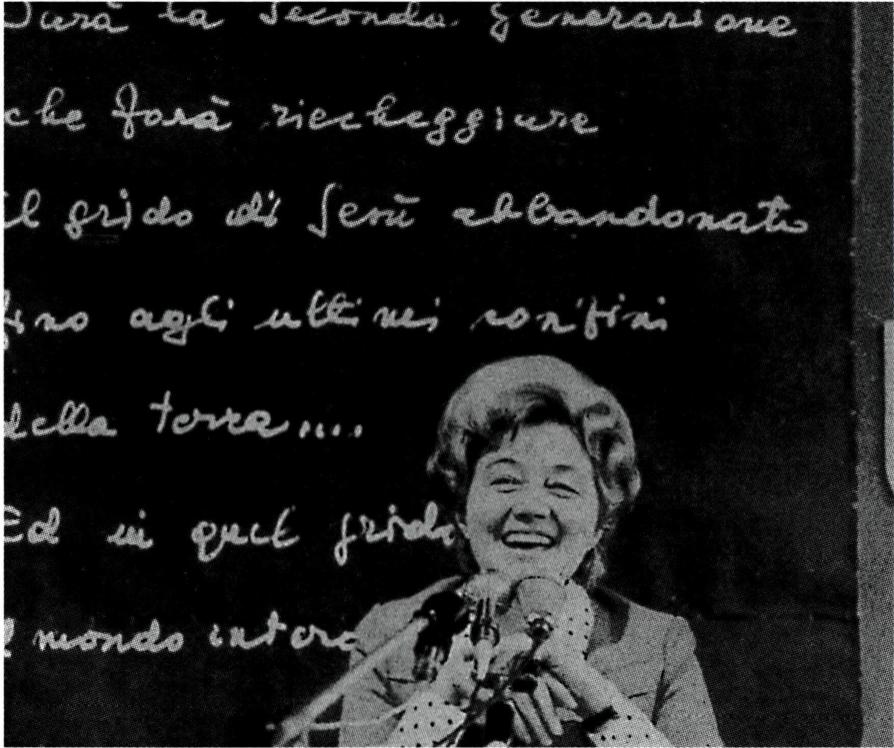 Sarà la seconda generazione
che farà riecheggiare
il grido di Gesù abbandonato
fino agli ultimi confini
della terra....
Ed in quel grido
l mondo intero